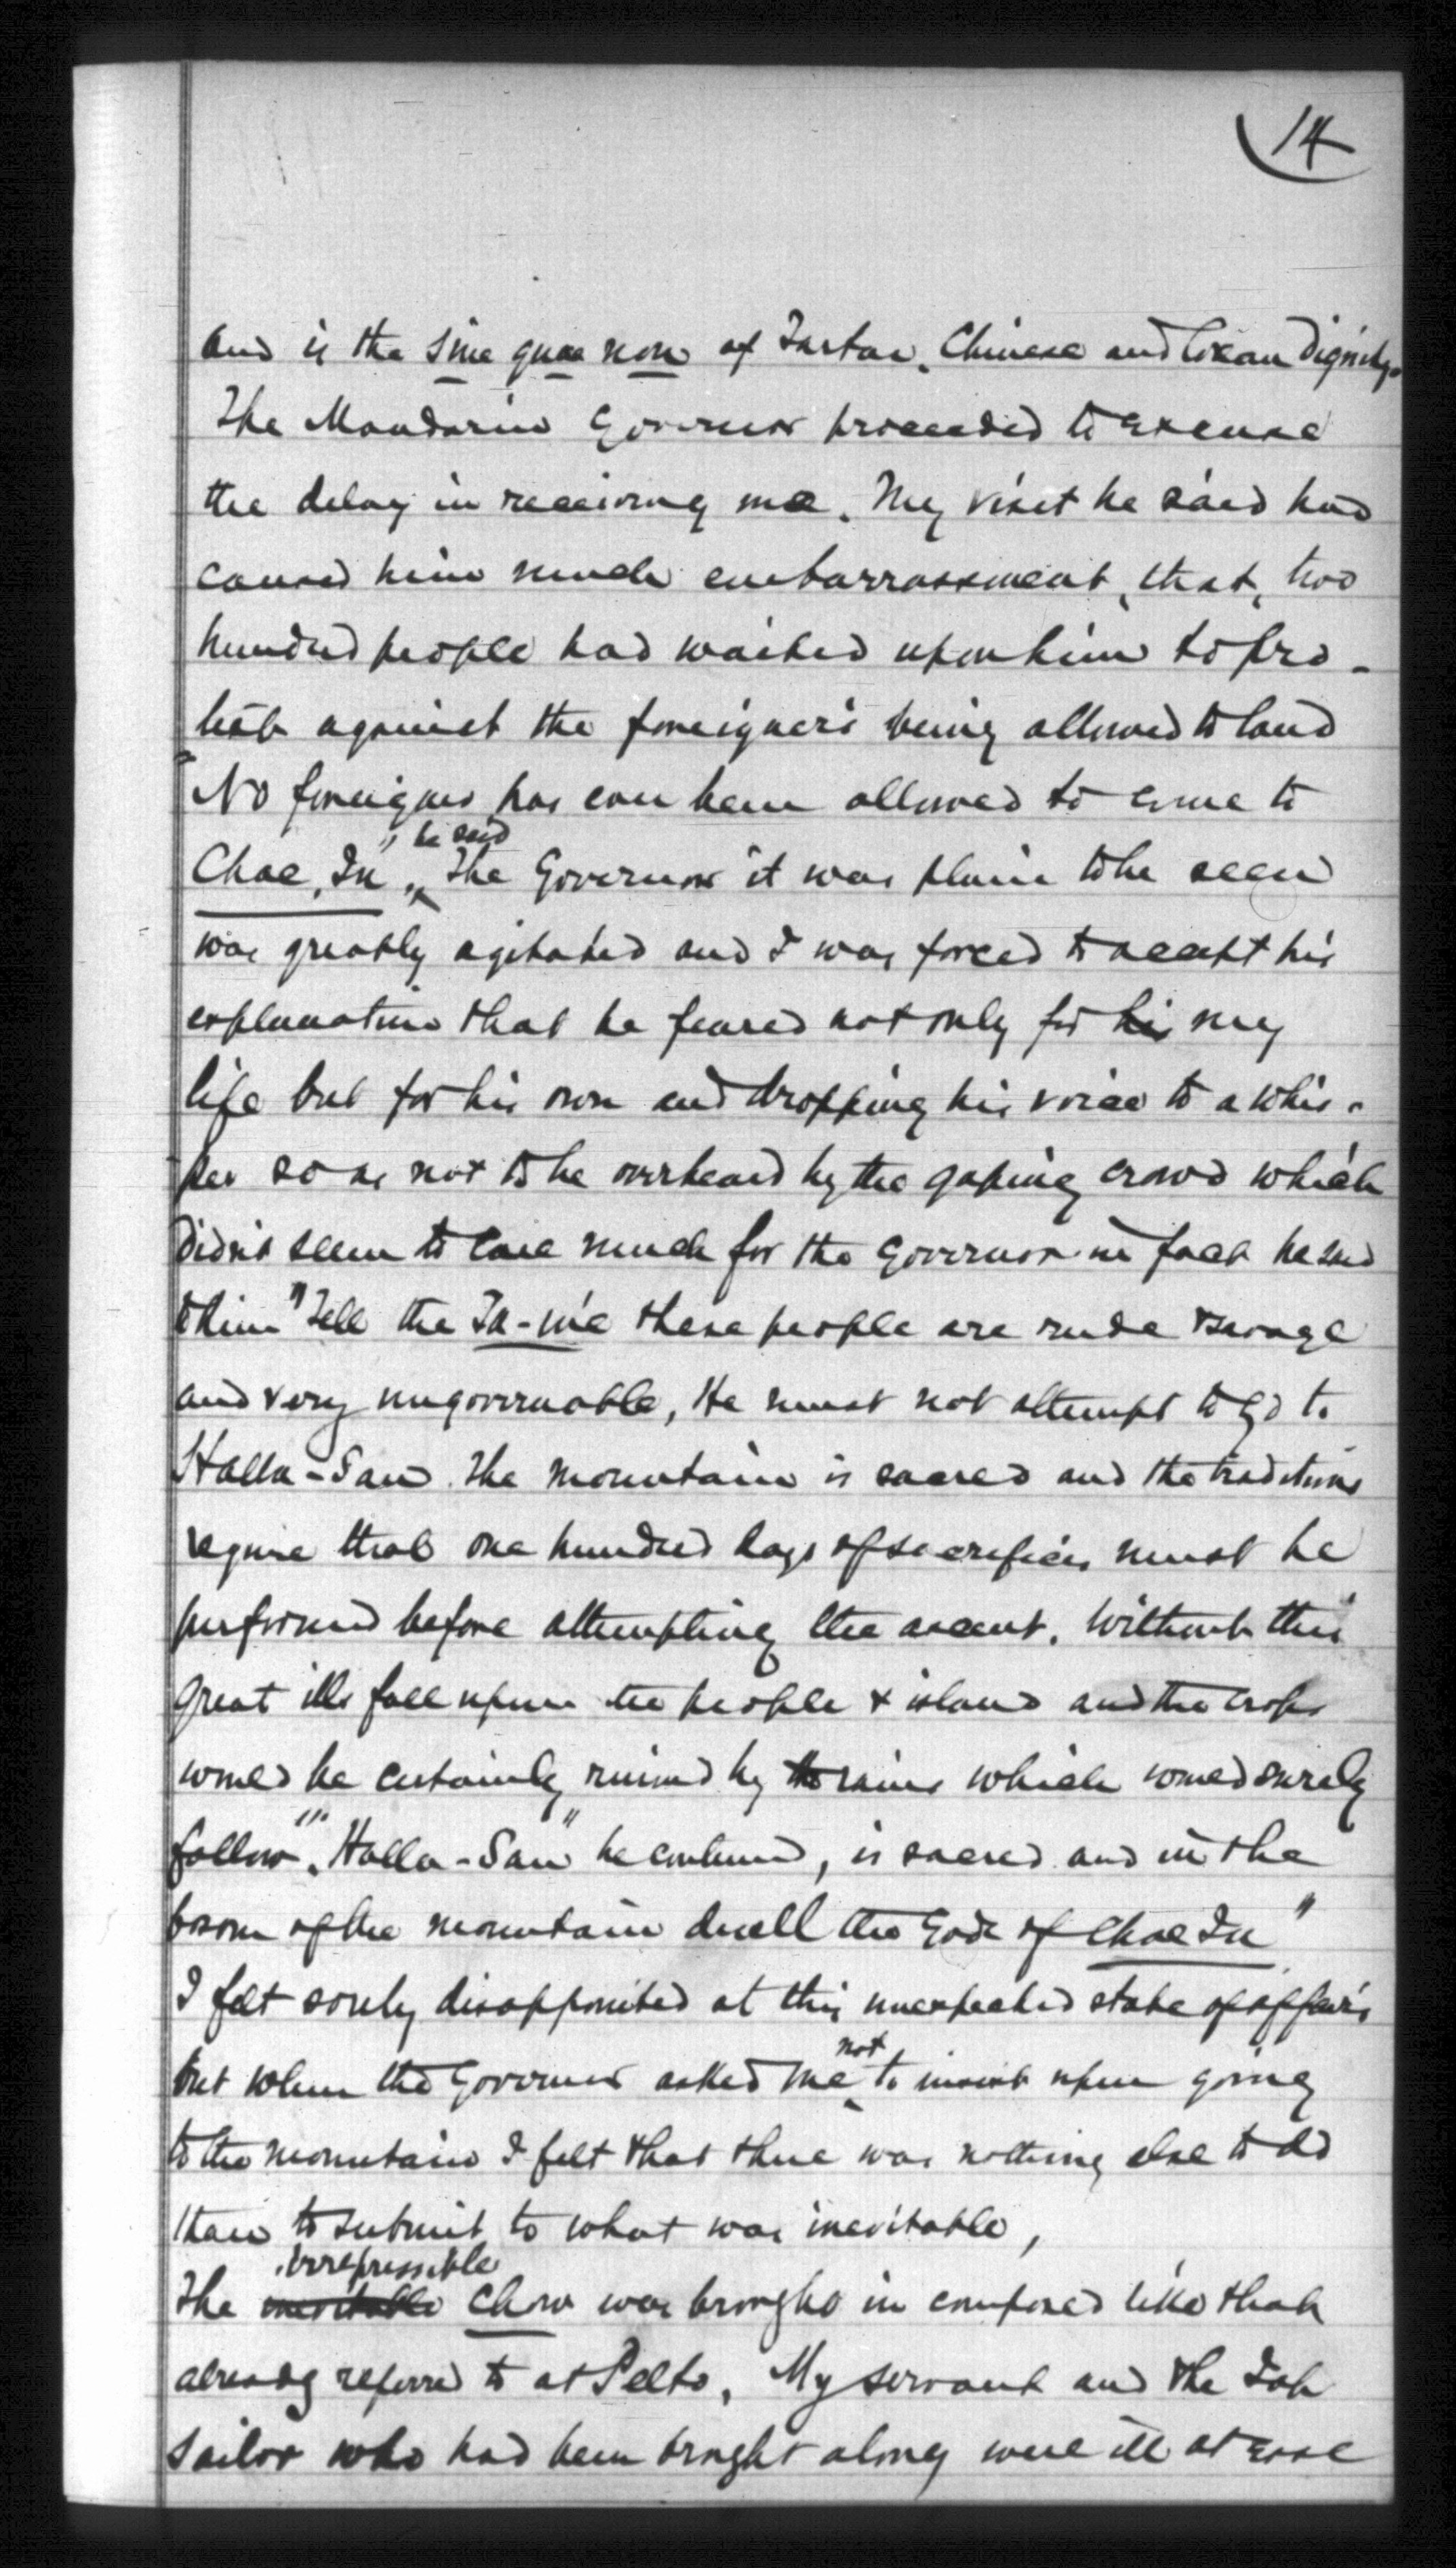 14
and is the sine quae non of Tartar, Chinese and Corean dignity.
The Mandarin Governor proceeded to excuse
the delay in receiving me. My visit he said had
caused him much embarrassment, that, two
hundred people had waited upon him to pro-
test against the foreigner's being allowed to land
"No foreigner has ever been allowed to come to
Chae, Ju" he said The Governor it was plain to be seen
was greatly agitated and I was forced to accept his
explanation that he feared not only for his my
life but for his own and dropping his voice to a whis-
per so as not to be overheard by the gaping crowd which
didn't seem to care much for the Governor in fact he said
to him "Tell the Ta-in'e these people are rude & savage
and very ungovernable, He must not attempt to go to
Halla-San. The mountain is sacred and the traditions
require that one hundred days of sacrifices must be
performed before attempting the ascent. Without this
great ills fall upon the people & island and the crops
would be certainly ruined by the rains which would surely
follow". "Halla-San" he continued, is sacred and in the
bosom of the mountain dwell the Gods of Chae Ju"
I felt sorely disappointed at this unexpected state of affairs
but when the Governor asked me not to insist upon going
to the mountain I felt that there was nothing else to do
than to submit to what was inevitable,
The inevitable irrepressible Chow was brought in composed like that
already referred to at Pelto, My servant and the Jap
sailor who had been brought along were ill at ease